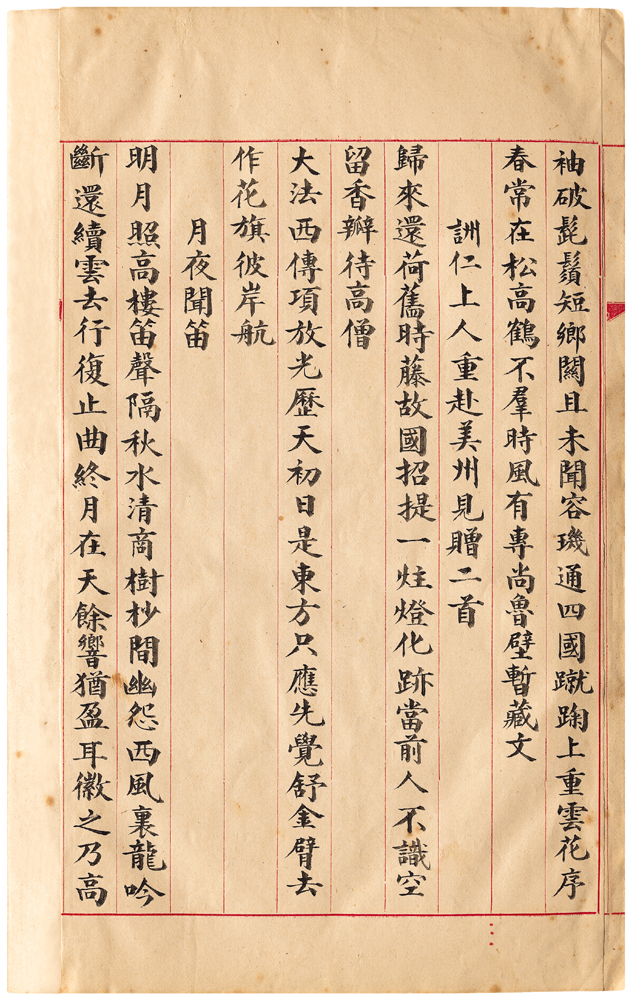 袖破髭鬚短鄉關且未聞容璣通四國蹴踘上重雲花序
春常在松高鶴不羣時風有專尚魯壁暫藏文
詶仁上人重赴美州見贈二首
歸來還荷舊時藤故國招提一炷燈化跡當前人不識空
留香瓣待高僧
大法西傳項放光歷天初日是東方只應先覺舒金臂去
作花旗彼岸航
月夜聞笛
明月照高樓笛聲隔秋水清商樹杪間幽怨西風裏龍吟
斷還續雲去行復止曲終月在天餘響猶盈耳徽之乃高